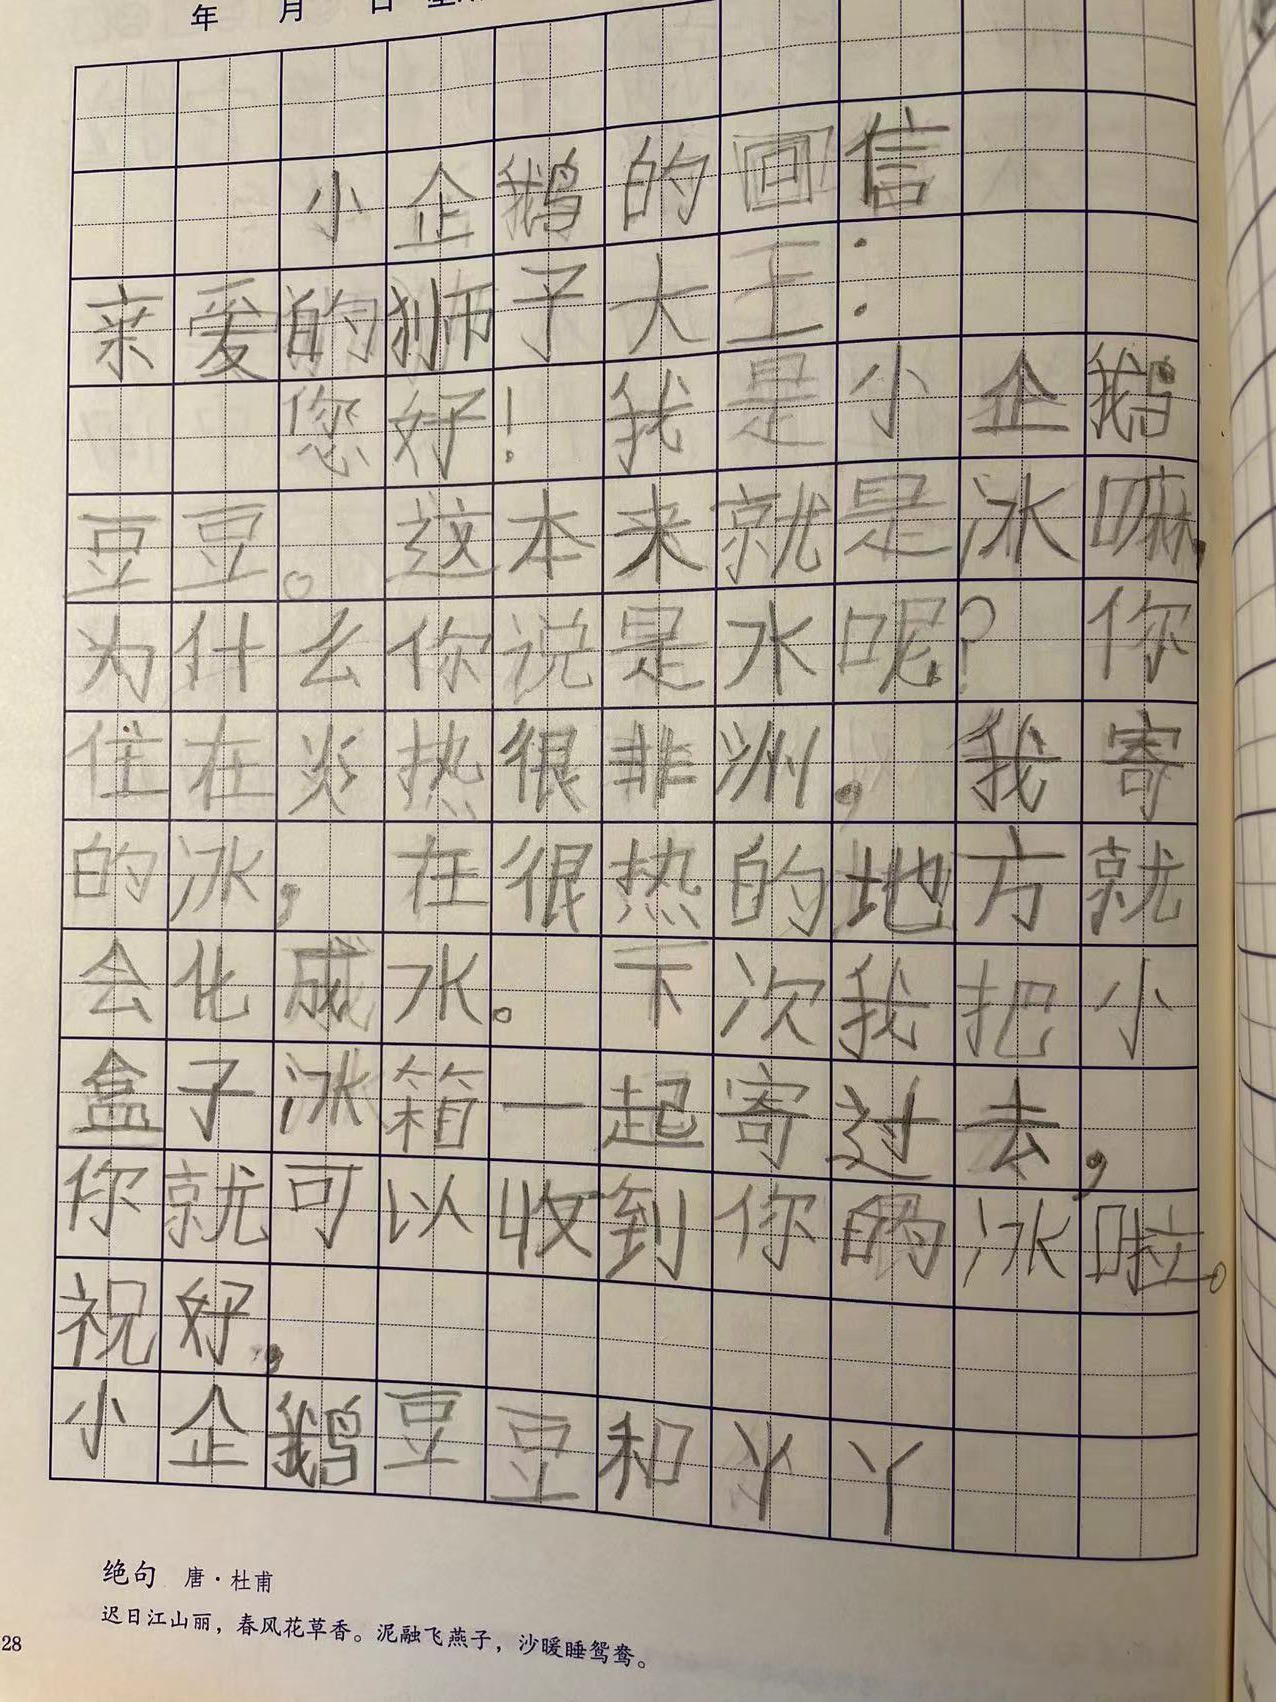 年 月 日
小企鹅的回信
亲爱的狮子大王：
您好！我是小企鹅
豆豆。这本来就是冰嘛，
为什么你说是水呢？你
住在炎热很非洲，我寄
的冰，在很热的地方就
会化成水。下次我把小
盒子冰箱一起寄过去，
你就可以收到你的冰啦。
祝好，
小企鹅豆豆和丫丫
绝句 唐·杜甫
迟日江山丽，春风花草香。泥融飞燕子，沙暖睡鸳鸯。
28